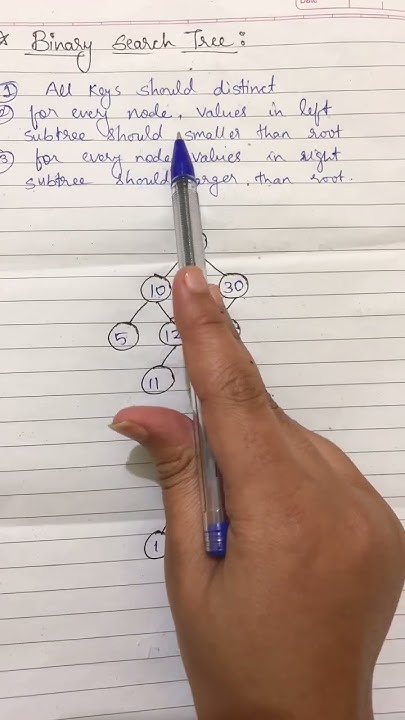 * Binary Search Tree:
① All Keys should distinct
② for every node, values in left
subtree should smaller than root
③ for every node values in right
subtree should larger than root.
10 30
5 12
11
1